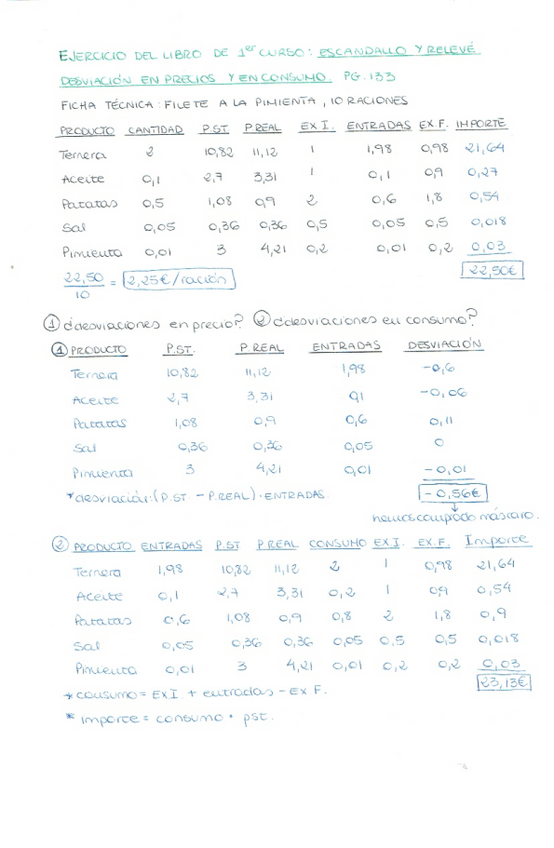 EJERCICIO DEL LIBRO DE 1er CURSO: ESCANDALLO Y RELEVÉ
DESVIACIÓN EN PRECIOS Y EN CONSUMO. PG.133
FICHA TÉCNICA: FILETE A LA PIMIENTA, 10 RACIONES
PRODUCTO CANTIDAD P.ST P.REAL EX I. ENTRADAS EX F. IMPORTE
Ternera 2 10,82 11,12 1 1,98 0,98 21,64
Aceite 0,1 2,7 3,31 1 0,1 0,9 0,27
Patatas 0,5 1,08 0,9 2 0,6 1,8 0,54
Sal 0,05 0,36 0,36 0,5 0,05 0,5 0,018
Pimienta 0,01 3 4,21 0,2 0,01 0,2 0,03
22,50/10 = 2,25€/ración 22,50€
① ¿desviaciones en precio? ② ¿desviaciones en consumo?
① PRODUCTO P.ST. P.REAL ENTRADAS DESVIACIÓN
Ternera 10,82 11,12 1,98 -0,6
Aceite 2,7 3,31 0,1 -0,06
Patatas 1,08 0,9 0,6 0,11
Sal 0,36 0,36 0,05 0
Pimienta 3 4,21 0,01 -0,01
*desviación:(P.ST - P.REAL)·ENTRADAS. -0,56€
hemos comprado más caro.
② PRODUCTO ENTRADAS P.ST P.REAL CONSUMO EX I. EX.F. Importe
Ternera 1,98 10,82 11,12 2 1 0,98 21,64
Aceite 0,1 2,7 3,31 0,2 1 0,9 0,54
Patatas 0,6 1,08 0,9 0,8 2 1,8 0,9
Sal 0,05 0,36 0,36 0,05 0,5 0,5 0,018
Pimienta 0,01 3 4,21 0,01 0,2 0,2 0,03
* consumo = EX I. + entradas - EX F. 23,13€
* importe = consumo · pst.